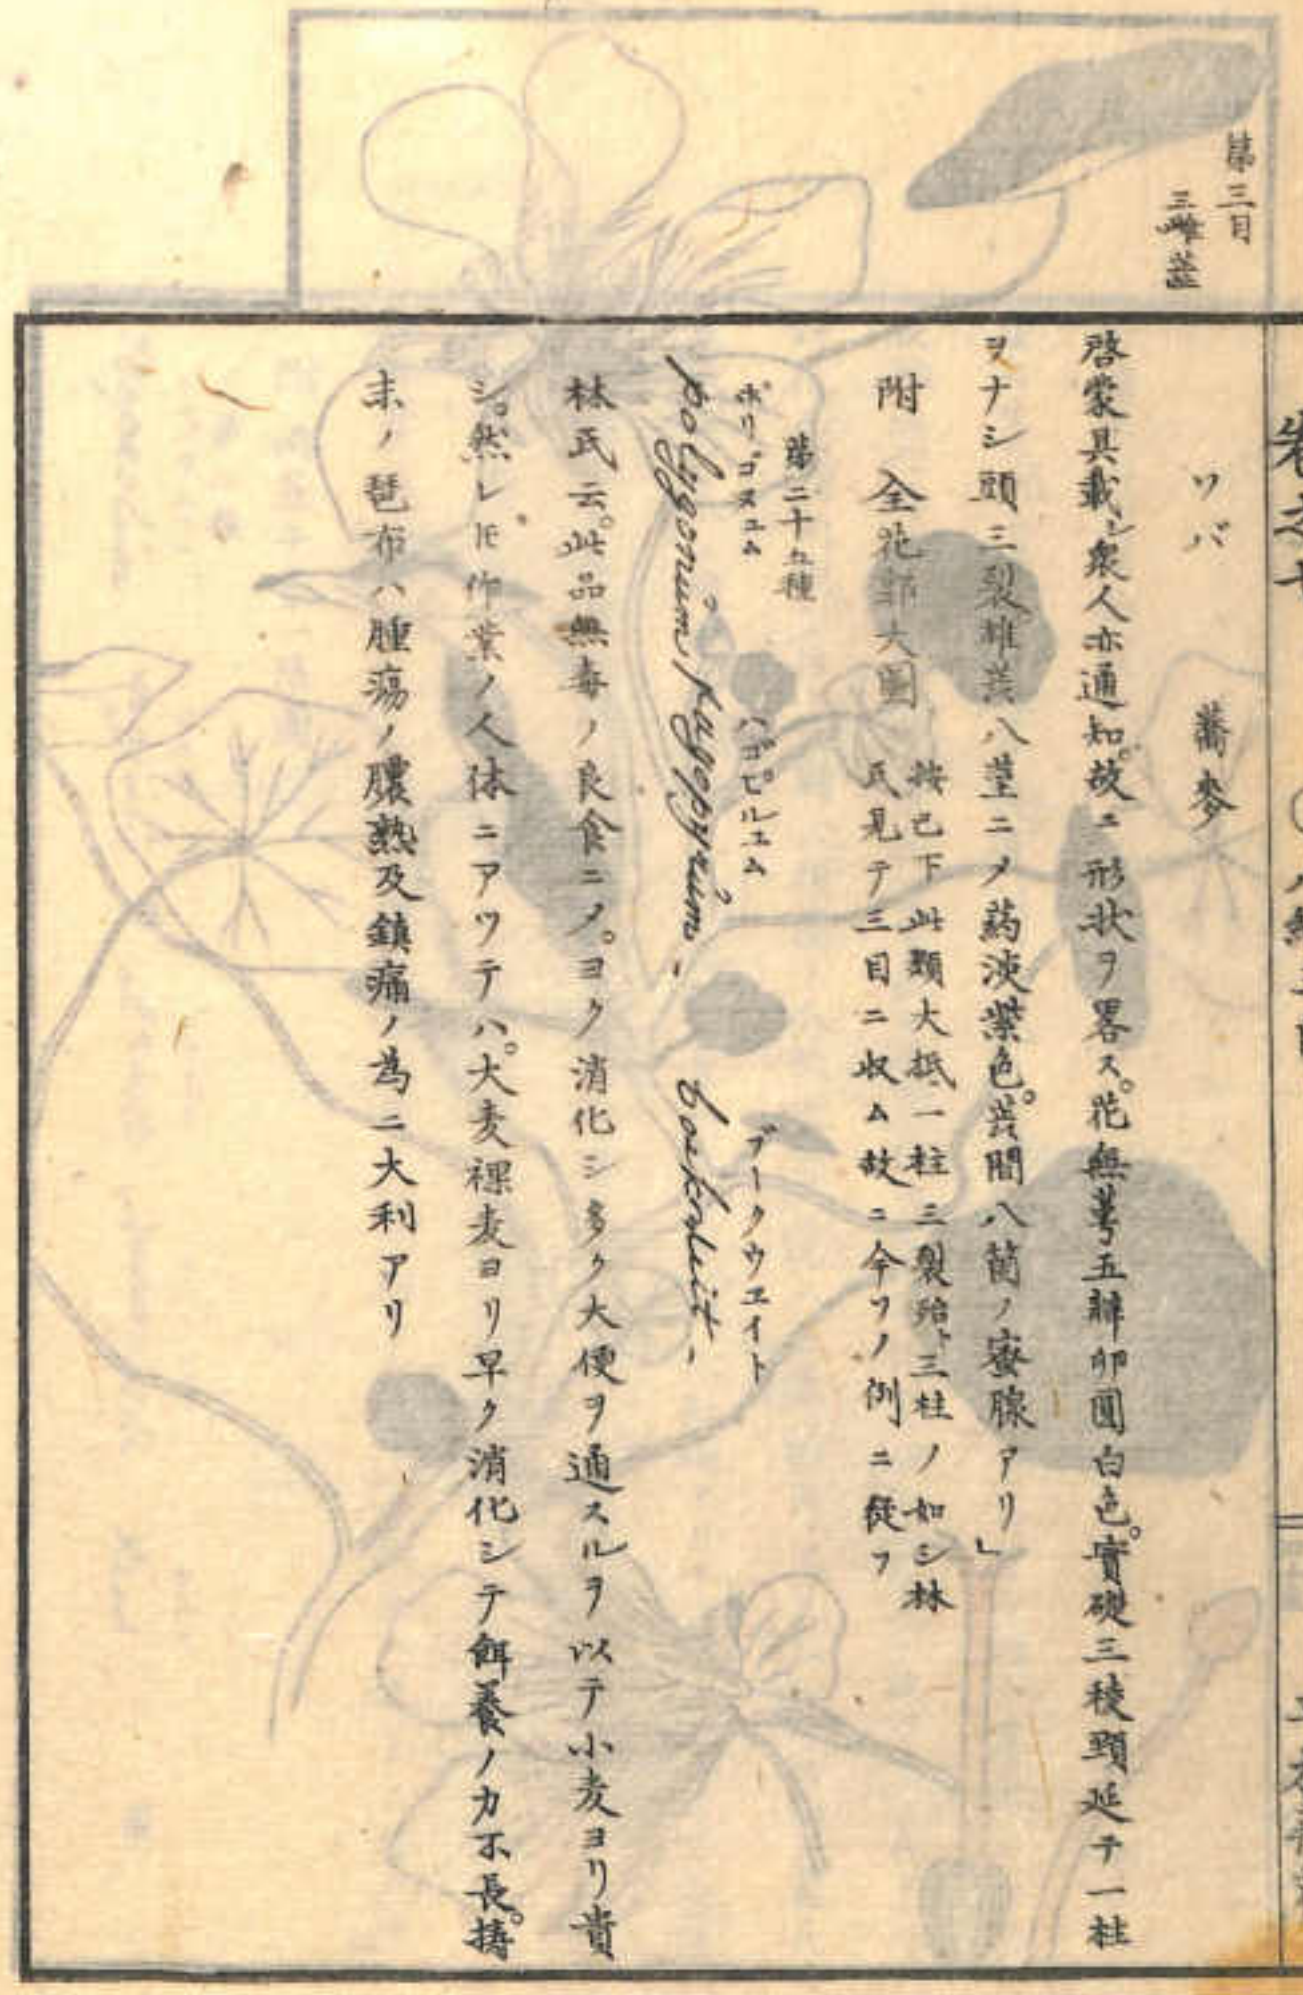 第三目
三雌蕋
ソバ 蕎麥
啓蒙具載シ衆人亦通知。故ニ形状ヲ畧ス。花無萼五瓣卵圓白色。實礎三稜頭延テ一柱
ヲナシ頭三裂雄蕋八莖ニメ葯淡紫色。蕋間八箇ノ蜜腺アリ」
附 全花郭大圖
按已下此類大抵一柱三裂殆ト三柱ノ如シ林
氏見テ三目ニ収ム故ニ今ソノ例ニ従フ
第二十五種
ポリゴヌユム ハゴピルユム ブークウエイト
polygonum fagopyrum. boekweit.
林氏云。此品無毒ノ良食ニメ。ヨク消化シ多ク大便ヲ通スルヲ以テ小麦ヨリ貴
シ。然レ圧作業ノ人体ニアツテハ。大麦裸麦ヨリ早ク消化シテ餌養ノ力不長。擣
末ノ琶布ハ腫瘍ノ膿熟及鎮痛ノ為ニ大利アリ